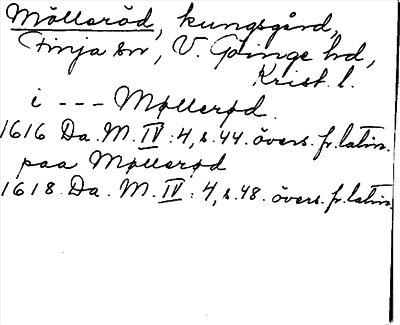 Mölleröd, kungsgård,
Finja sn, V. Göinge hd,
Krist. l.
i --- Møllerød.
1616 Da. M. IV: 4, s. 44. övers. fr. latin.
paa Møllerød
1618 Da. M. IV: 4, s. 48. övers. fr. latin.